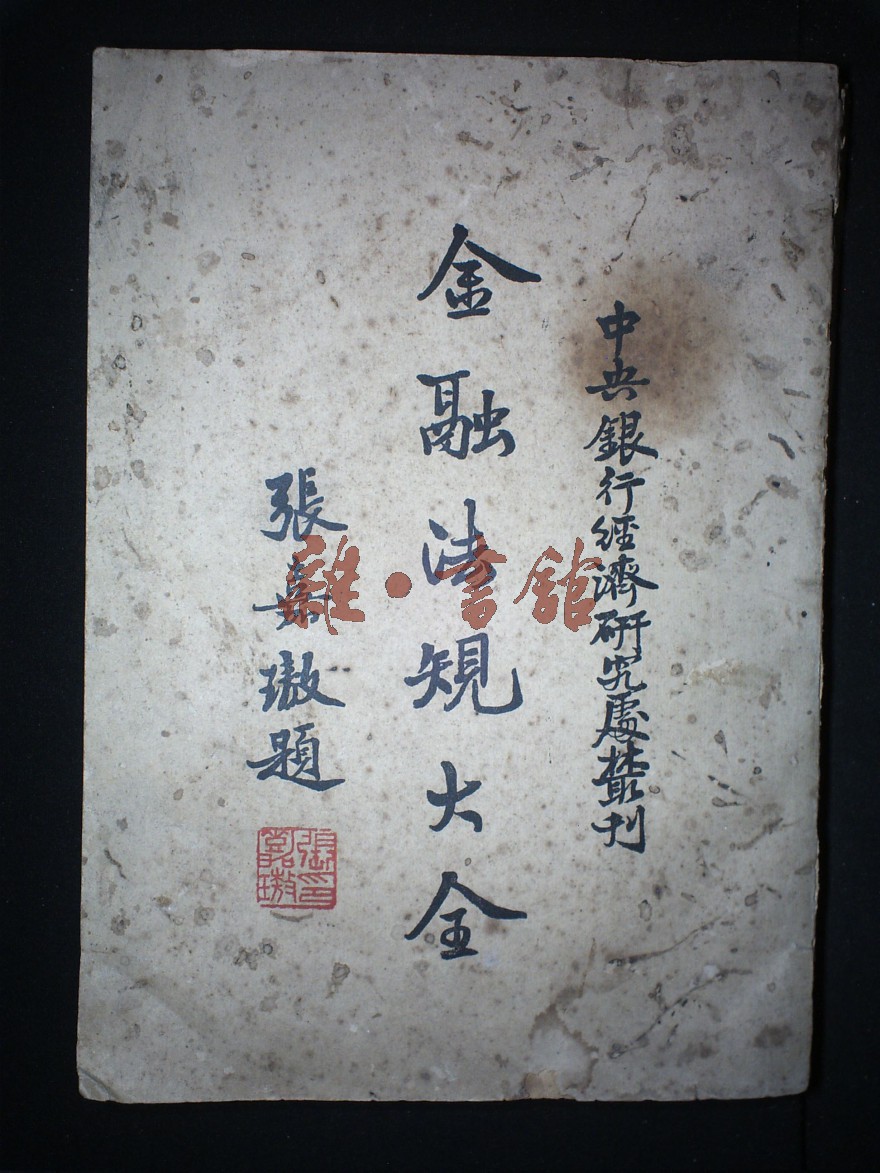 中央銀行經濟研究處叢刊
金融法規大全
張嘉璈題
張印嘉璈
雜·書館